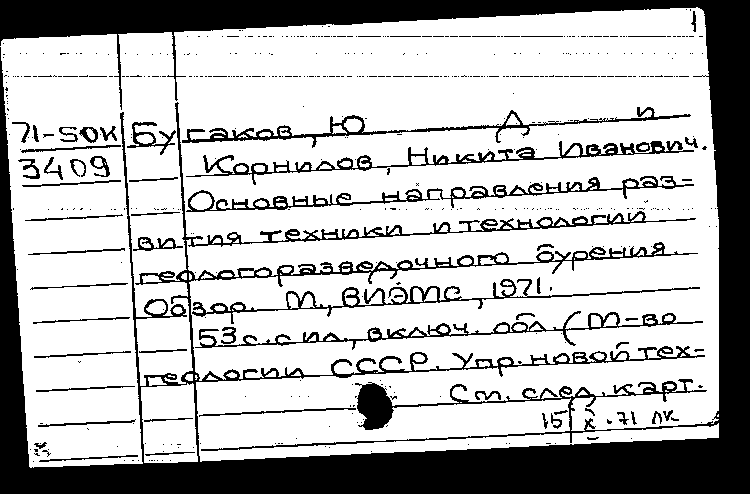 1
71-50К Бугаков, Ю Д и
3409 Корнилов, Никита Иванович.
Основные направления раз=
вития техники и технологии
геологоразведочного бурения.
Обзор. М., ВИЭМС, 1971.
53 с. с ил., включ. обл. (М-во
геологии СССР. Упр. новой тех=
См. след. карт.
15 X.71 ЛК